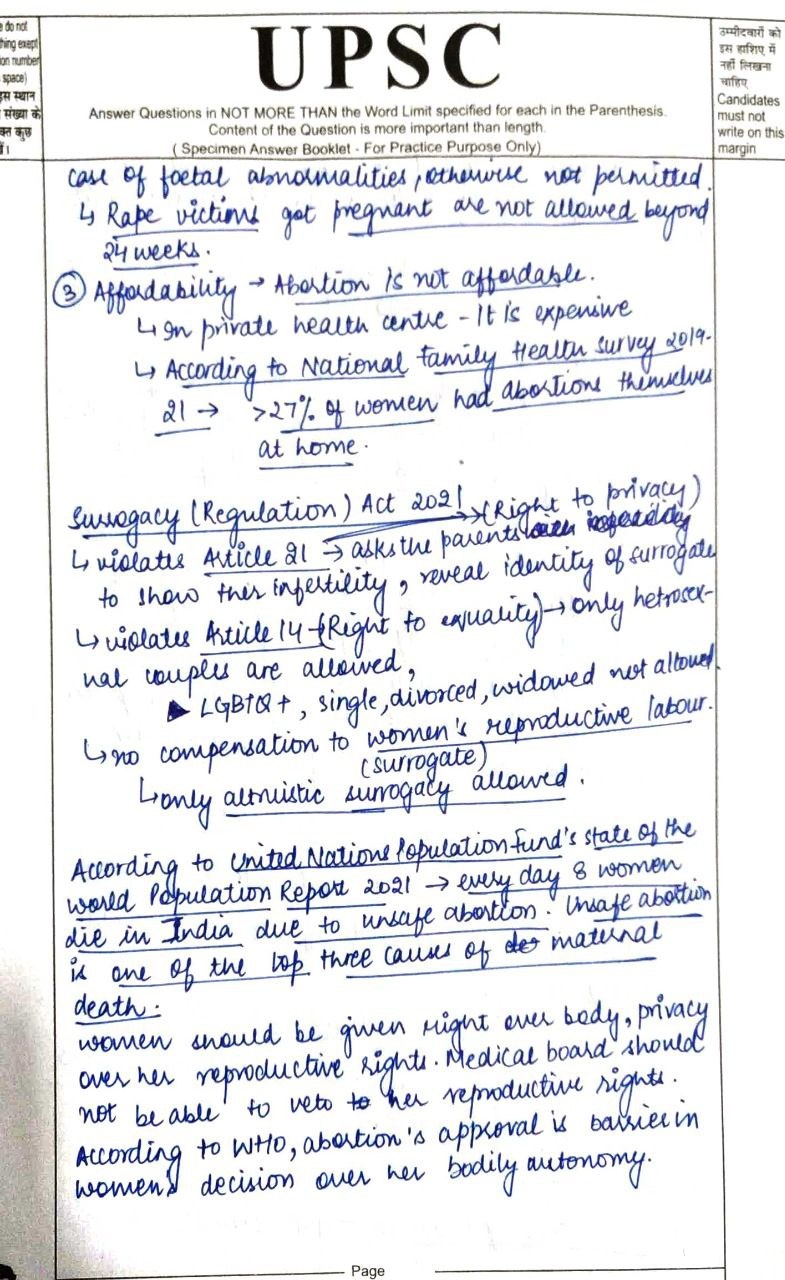 e do not
thing exept
ion number
space)
इस स्थान
संख्या के
क्त कुछ
UPSC
Answer Questions in NOT MORE THAN the Word Limit specified for each in the Parenthesis.
Content of the Question is more important than length.
( Specimen Answer Booklet - For Practice Purpose Only)
उम्मीदवारों को
इस हाशिए में
नहीं लिखना
चाहिए
Candidates
must not
write on this
margin
case of foetal abnormalities, otherwise not permitted.
↳ Rape victims got pregnant are not allowed beyond
24 weeks.
③ Affordability → Abortion is not affordable.
↳ In private health centre - It is expensive
↳ According to National Family Health Survey 2019-
21 → >27% of women had abortions themselves
at home.
Surrogacy (Regulation) Act 2021
↳ violates Article 21 → (Right to privacy)
→ asks the parents
to show their infertility, reveal identity of surrogate
↳ violates Article 14 - (Right to equality) → only hetrosex-
ual couples are allowed,
▶ LGBTQ+, single, divorced, widowed not allowed.
↳ no compensation to women's reproductive labour.
(surrogate)
↳ only altruistic surrogacy allowed.
According to United Nations Population Fund's state of the
world Population Report 2021 → every day 8 women
die in India due to unsafe abortion. Unsafe abortion
is one of the top three causes of maternal
death.
women should be given right over body, privacy
over her reproductive rights. Medical board should
not be able to veto her reproductive rights.
According to WHO, abortion's approval is barrier in
women's decision over her bodily autonomy.
Page